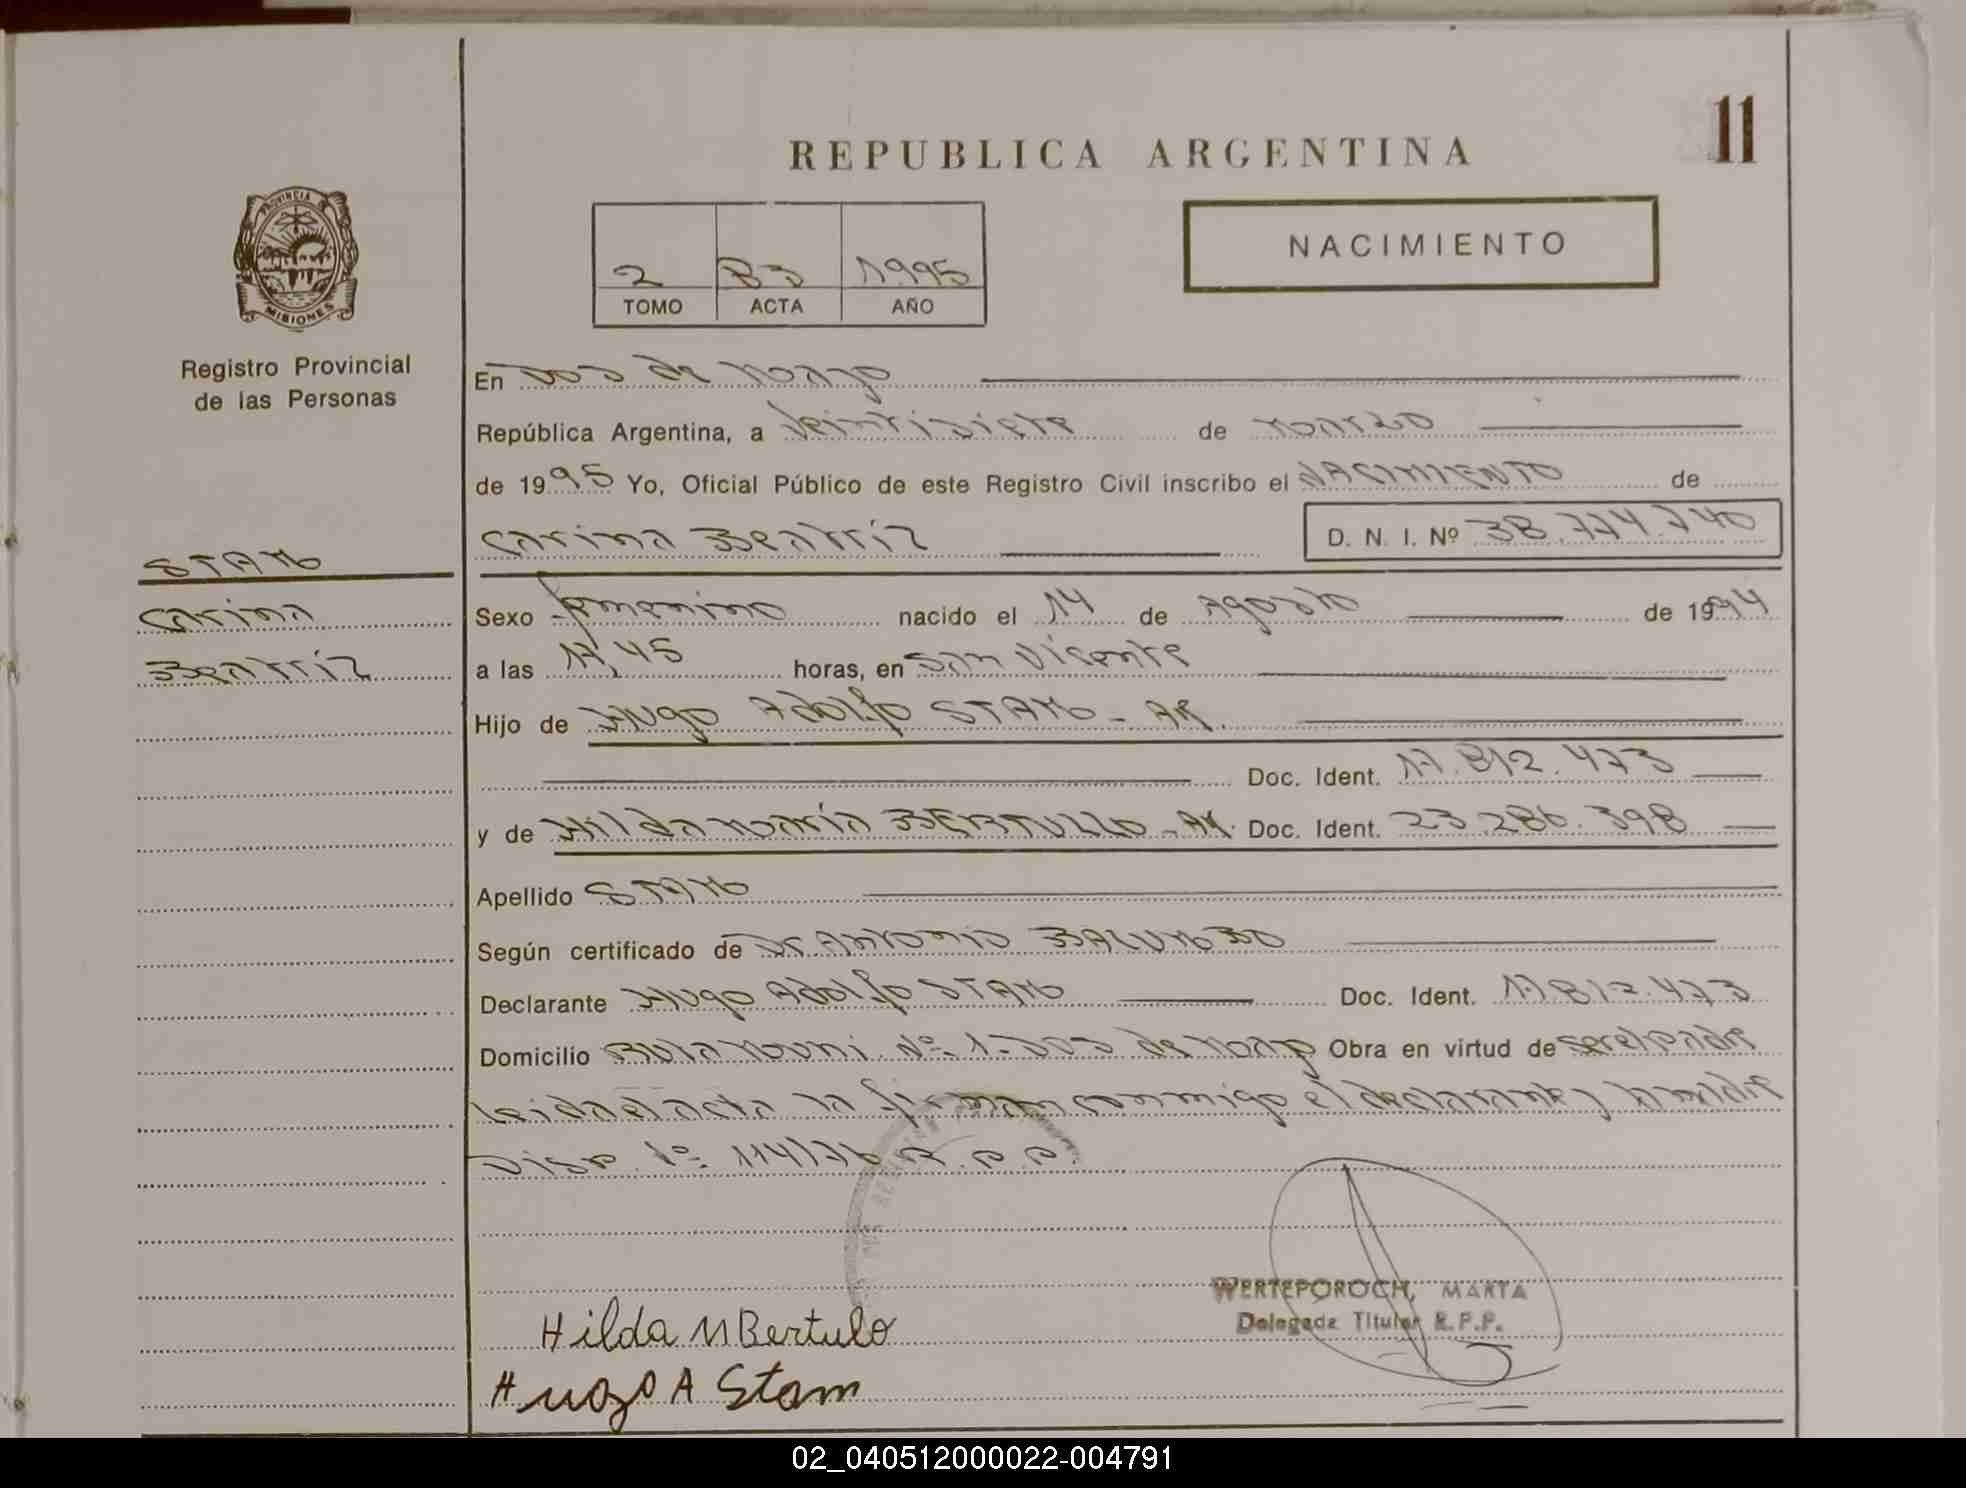 11
REPUBLICA ARGENTINA
PROVINCIA DE
MISIONES
NACIMIENTO
2 83 1995
TOMO ACTA AÑO
Registro Provincial
de las Personas
En Dos de Mayo
República Argentina, a Veintisiete de Marzo
de 1995 Yo, Oficial Público de este Registro Civil inscribo el NACIMIENTO de
Carina Beatriz D. N. I. Nº 38.774.740
STAM
Carina
Beatriz
Sexo femenino nacido el 14 de Agosto de 1994
a las 17,45 horas, en San Vicente
Hijo de Hugo Adolfo STAM - AR.
Doc. Ident. 17.812.473
y de Hilda María BERTULLO - AR. Doc. Ident. 23.286.398
Apellido STAM
Según certificado de Dr. Antonio
Declarante Hugo Adolfo STAM Doc. Ident. 17.812.473
Domicilio Ruta Nº 1- Dos de Mayo Obra en virtud de ser el padre
Leida el acta la firman conmigo el declarante y la madre
Disp. Nº 114/76 R.P.P.
WERTEPOROCH, MARTA
Delegada Titular R.P.P.
Hilda M Bertulo
Hugo A Stam
02_040512000022-004791